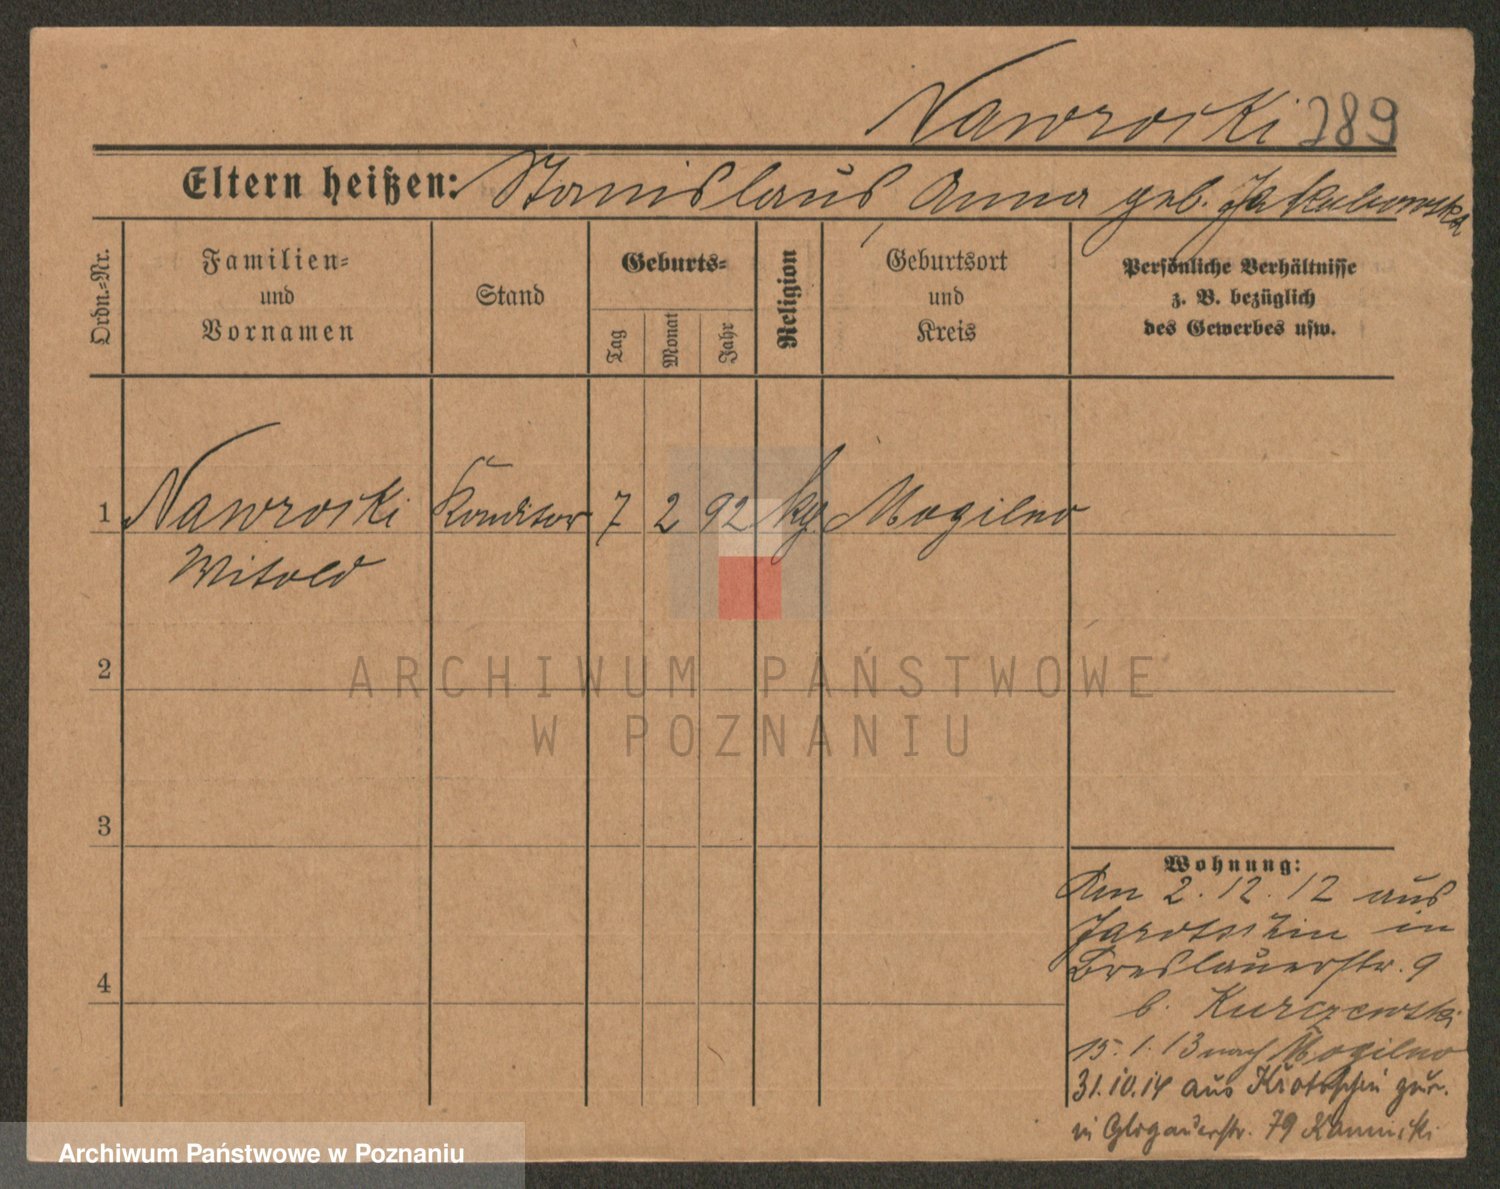 Nawrocki 289
Eltern heißen: Stanislaus Anna geb. Jakubowska
Ordn.-Nr.
Familien- und Vornamen
Stand
Geburts-
Tag
Monat
Jahr
Religion
Geburtsort und Kreis
Persönliche Verhältnisse
z. B. bezüglich
des Gewerbes usw.
1 Nawrocki Konditor 7 2 92 kg. Mogilno
Witold
2
3
4
Wohnung:
Am 2.12.12 aus
Jarotschin in
Breslauerstr. 9
b. Kurczewski
15.1.13 nach Mogilno
31.10.14 aus Krotoschin zur.
in Glogauerstr. 79
ARCHIWUM PAŃSTWOWE
W POZNANIU
Archiwum Państwowe w Poznaniu